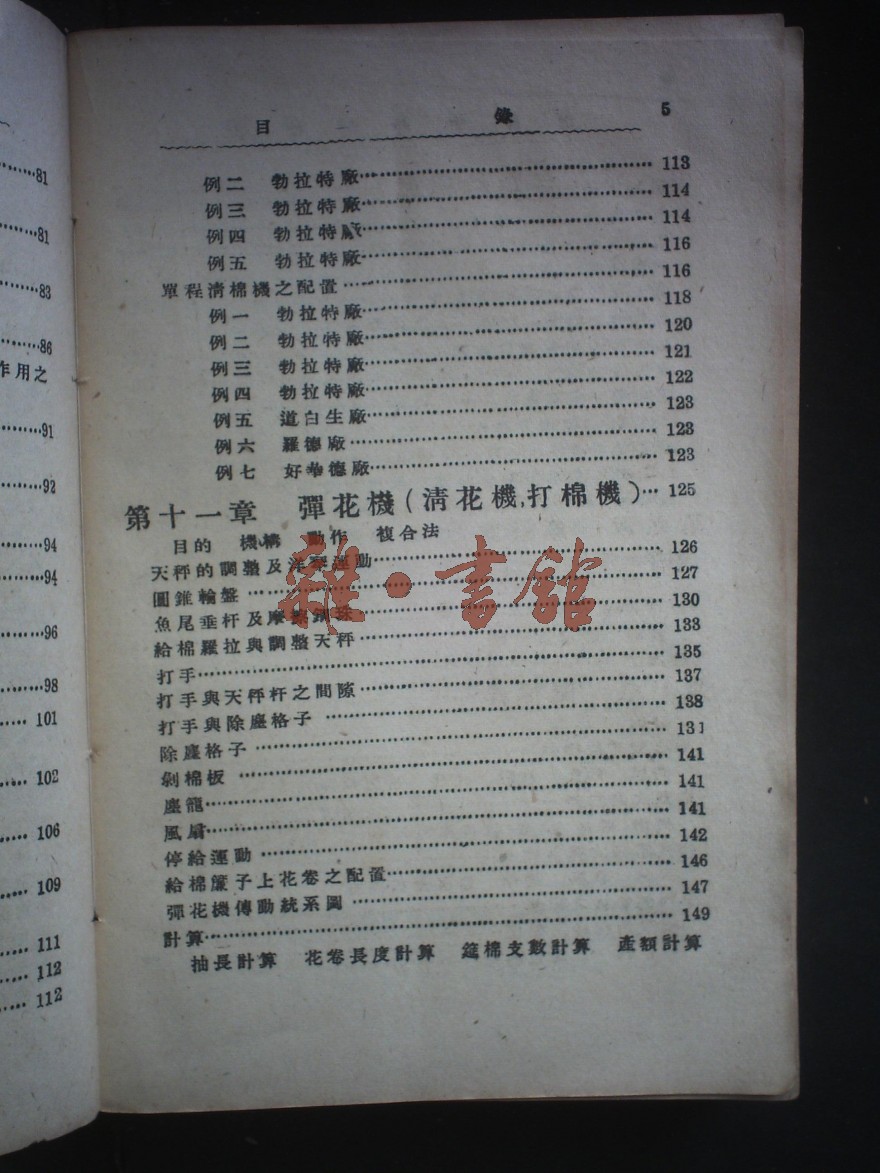 81
81
83
86
作用之
91
92
94
94
96
98
101
102
106
109
111
112
112
目 錄 5
例二 勃拉特廠 113
例三 勃拉特廠 114
例四 勃拉特廠 114
例五 勃拉特廠 116
單程清棉機之配置 116
例一 勃拉特廠 118
例二 勃拉特廠 120
例三 勃拉特廠 121
例四 勃拉特廠 122
例五 道白生廠 123
例六 羅德廠 123
例七 好華德廠 123
第十一章 彈花機(清花機,打棉機) 125
目的 機構 動作 複合法
天秤的調整及洋琴運動 126
圓錐輪盤 127
魚尾垂杆及摩擦鋼珠 130
給棉羅拉與調整天秤 133
打手 135
打手與天秤杆之間隙 137
打手與除塵格子 138
除塵格子 131
剝棉板 141
塵籠 141
風扇 141
停給運動 142
給棉簾子上花卷之配置 146
彈花機傳動統系圖 147
計算 149
抽長計算 花卷長度計算 筵棉支數計算 產額計算
雜·書館